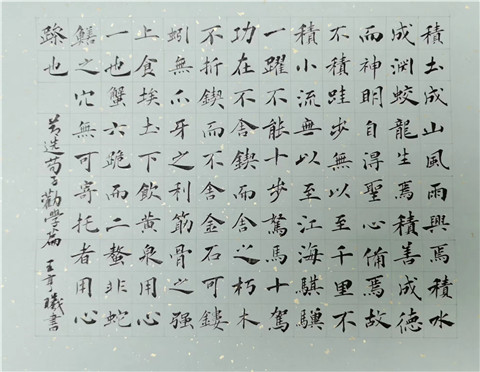 積土成山風雨興焉積水
成渊蛟龍生焉積善成德
而神明自得聖心備焉故
不積跬步無以至千里不
積小流無以至江海騏驥
一躍不能十步駑馬十駕
功在不舍鍥而舍之朽木
不折鍥而不舍金石可鏤
蚓無爪牙之利筋骨之强
上食埃土下飲黄泉用心
一也蟹六跪而二螯非蛇
鱔之穴無可寄托者用心
躁也
节选荀子勸學篇 王書